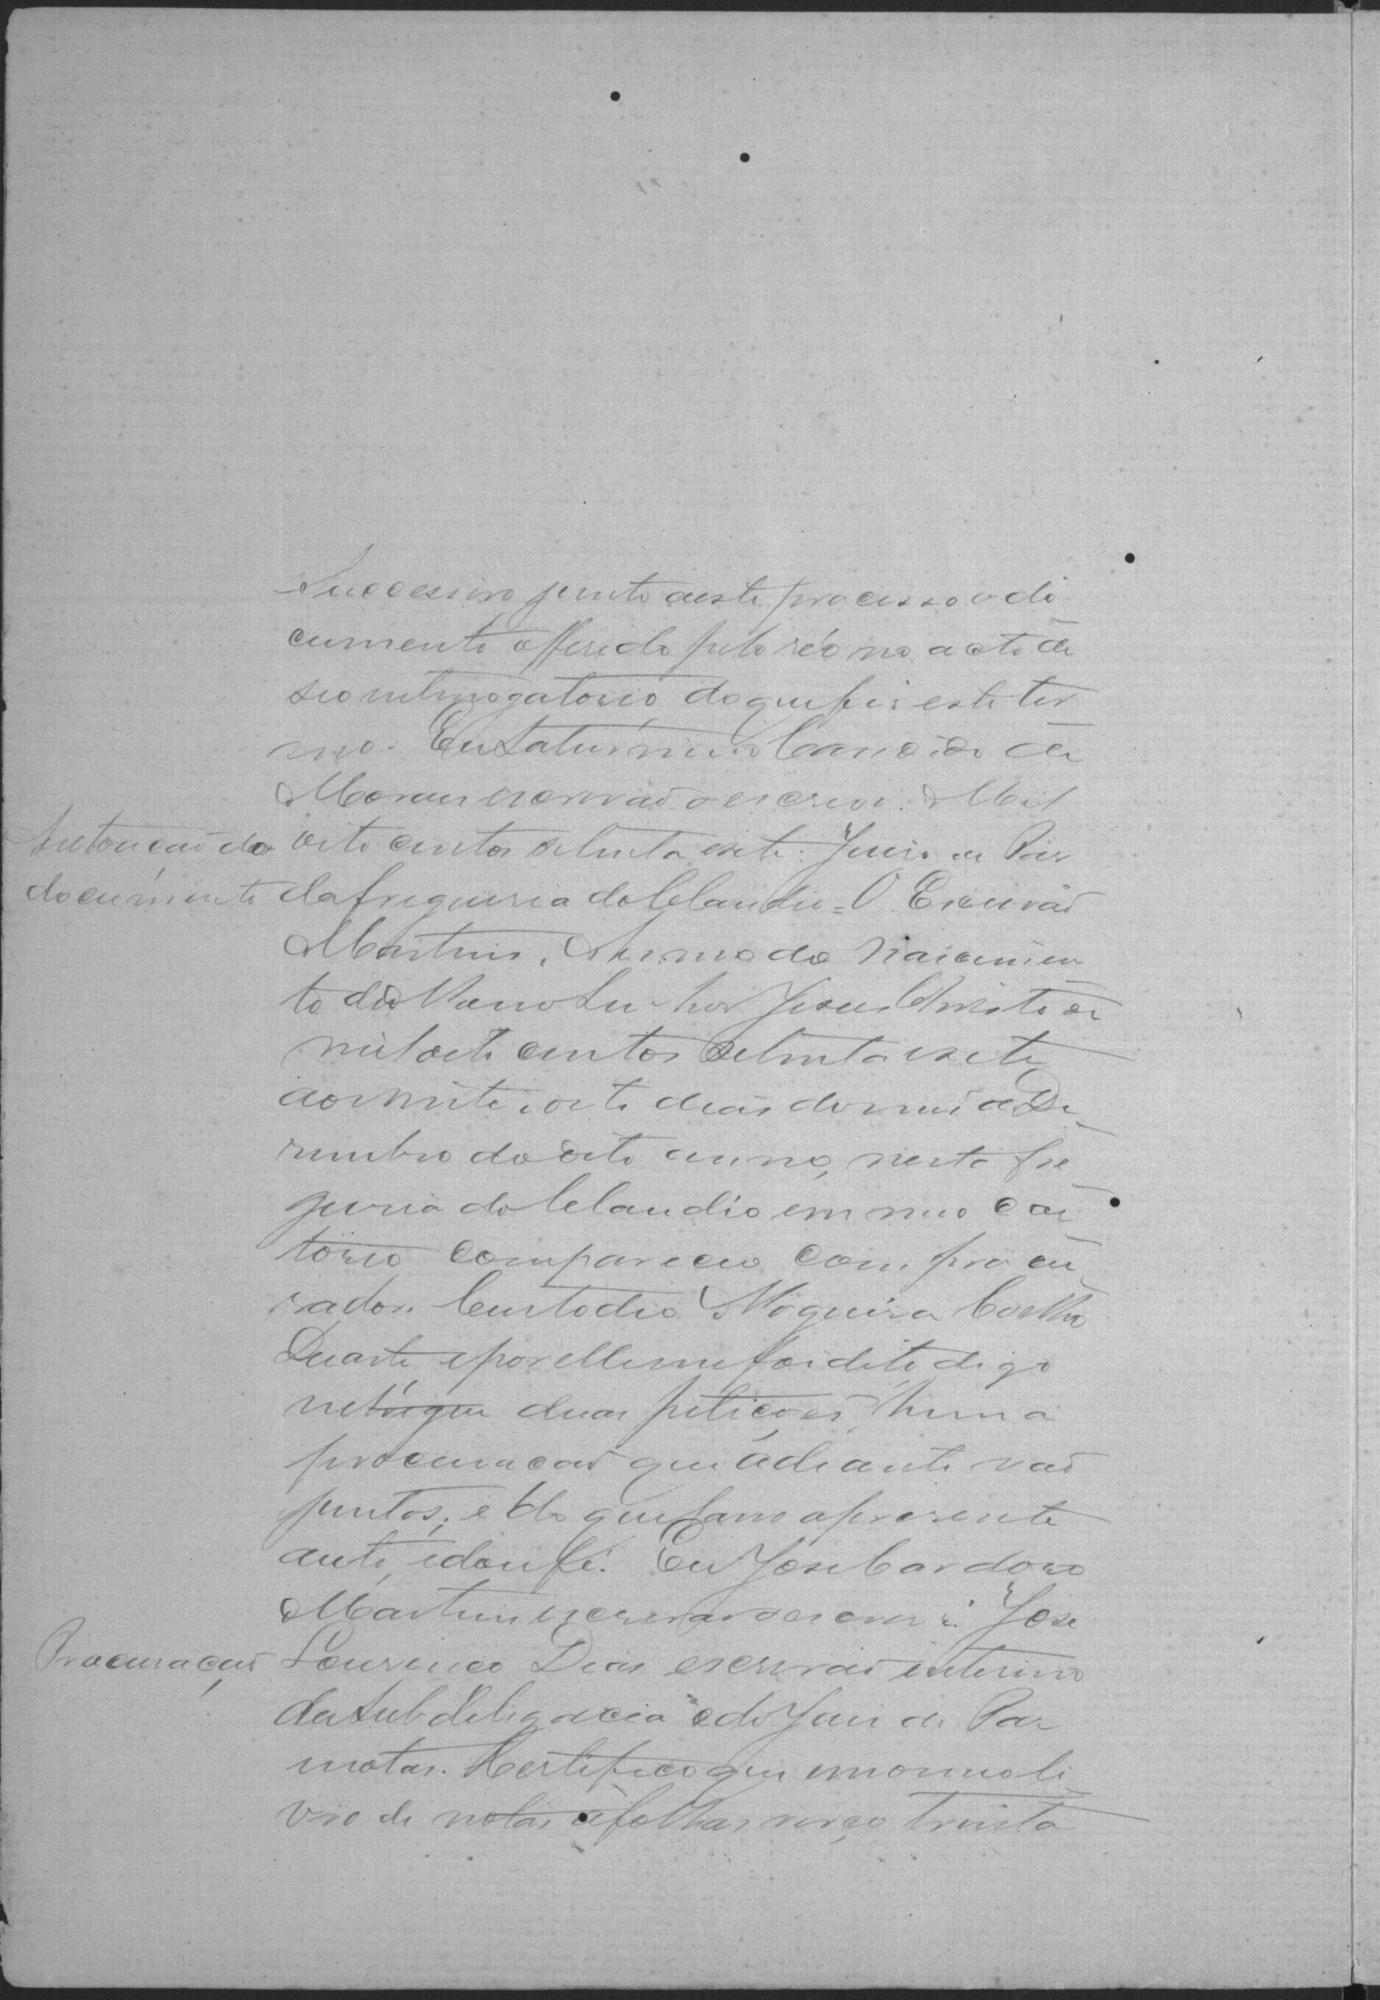 Successivo junto aeste processo o do
cumento offerecido pelo réo no acto de
seo interrogatorio, do que fis este ter
mo. Eu Saturnino Candido de
Moraes escrivão o escrevi. Mil
Autoucaõ do
documento
oito centos setenta e sete. Juiso de Pás
da freguesia do Claudio = O Escrivaõ
Martins. Anno do Nascimen
to do Nosso Senhor Jesus Christo de
mil oito centos setenta e sete
aos vinte e oito dias do mes de De
sembro do dito anno, nesta fre
guesia do Claudio em meo car
torio compareceo com procu
rador Custodio Nogueira Coelho
Duarte e por elle me foi dito digo
duas petiçoes, huma
procuracaõ que adiante vaõ
juntos; e do que lavro a presente
auto, e dou fé. Eu José Cardoso
Martins escrivaõ o escrevi. José
Procuraçaõ
Lourenco Dias escrivaõ interino
da Subdelegacia e do Juis de Pas
notas. Certifico que em o meo li
vro de notas á folhas verço trinta